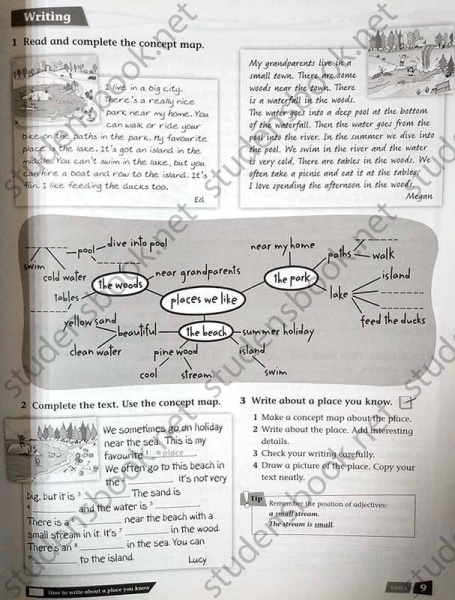 Writing
1 Read and complete the concept map.
I live in a big city.
There's a really nice
park near my home. You
can walk or ride your
bike on the paths in the park. My favourite
place is the lake. It's got an island in the
middle. You can't swim in the lake, but you
can hire a boat and row to the island. It's
fun. I like feeding the ducks too.
Ed
My grandparents live in a
small town. There are some
woods near the town. There
is a waterfall in the woods.
The water goes into a deep pool at the bottom
of the waterfall. Then the water goes from the
pool into the river. In the summer we dive into
the pool. We swim in the river and the water
is very cold. There are tables in the woods. We
often take a picnic and eat it at the tables.
I love spending the afternoon in the woods.
Megan
pool
dive into pool
swim
cold water
the woods
tables
near grandparents
places we like
near my home
the park
paths
walk
lake
island
feed the ducks
yellow sand
beautiful
clean water
the beach
summer holiday
pine wood
cool
stream
island
swim
2 Complete the text. Use the concept map.
We sometimes go on holiday
near the sea. This is my
favourite 1 place.
We often go to this beach in
the 2. It's not very
big, but it is 3. The sand is
4 and the water is 5.
There is a 6 near the beach with a
small stream in it. It's 7 in the wood.
There's an 8 in the sea. You can
9 to the island.
Lucy
3 Write about a place you know.
1 Make a concept map about the place.
2 Write about the place. Add interesting
details.
3 Check your writing carefully.
4 Draw a picture of the place. Copy your
text neatly.
Tip
Remember the position of adjectives:
a small stream.
The stream is small.
How to write about a place you know
Unit 1
9
studentsbook.net